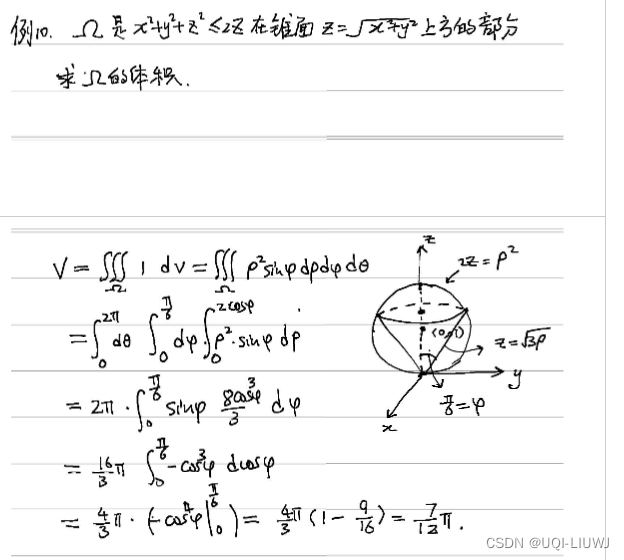 例10. Ω是 x²+y²+z² ≤ 2z 在锥面 z=√x²+y² 上方的部分
求Ω的体积.
V = ∭_Ω 1 dv = ∭_Ω ρ² sinφ dρ dφ dθ
= ∫₀^{2π} dθ ∫₀^{π/6} dφ ∫₀^{2cosφ} ρ²·sinφ dρ
= 2π · ∫₀^{π/6} sinφ 8cos³φ/3 dφ
= 16/3 π ∫₀^{π/6} -cos³φ dcosφ
= 4/3 π · (-cos⁴φ |₀^{π/6}) = 4π/3 (1 - 9/16) = 7/12 π.
z
2z = ρ²
(0,0,1)
z=√3ρ
y
π/6=φ
x
CSDN @UQI-LIUWJ